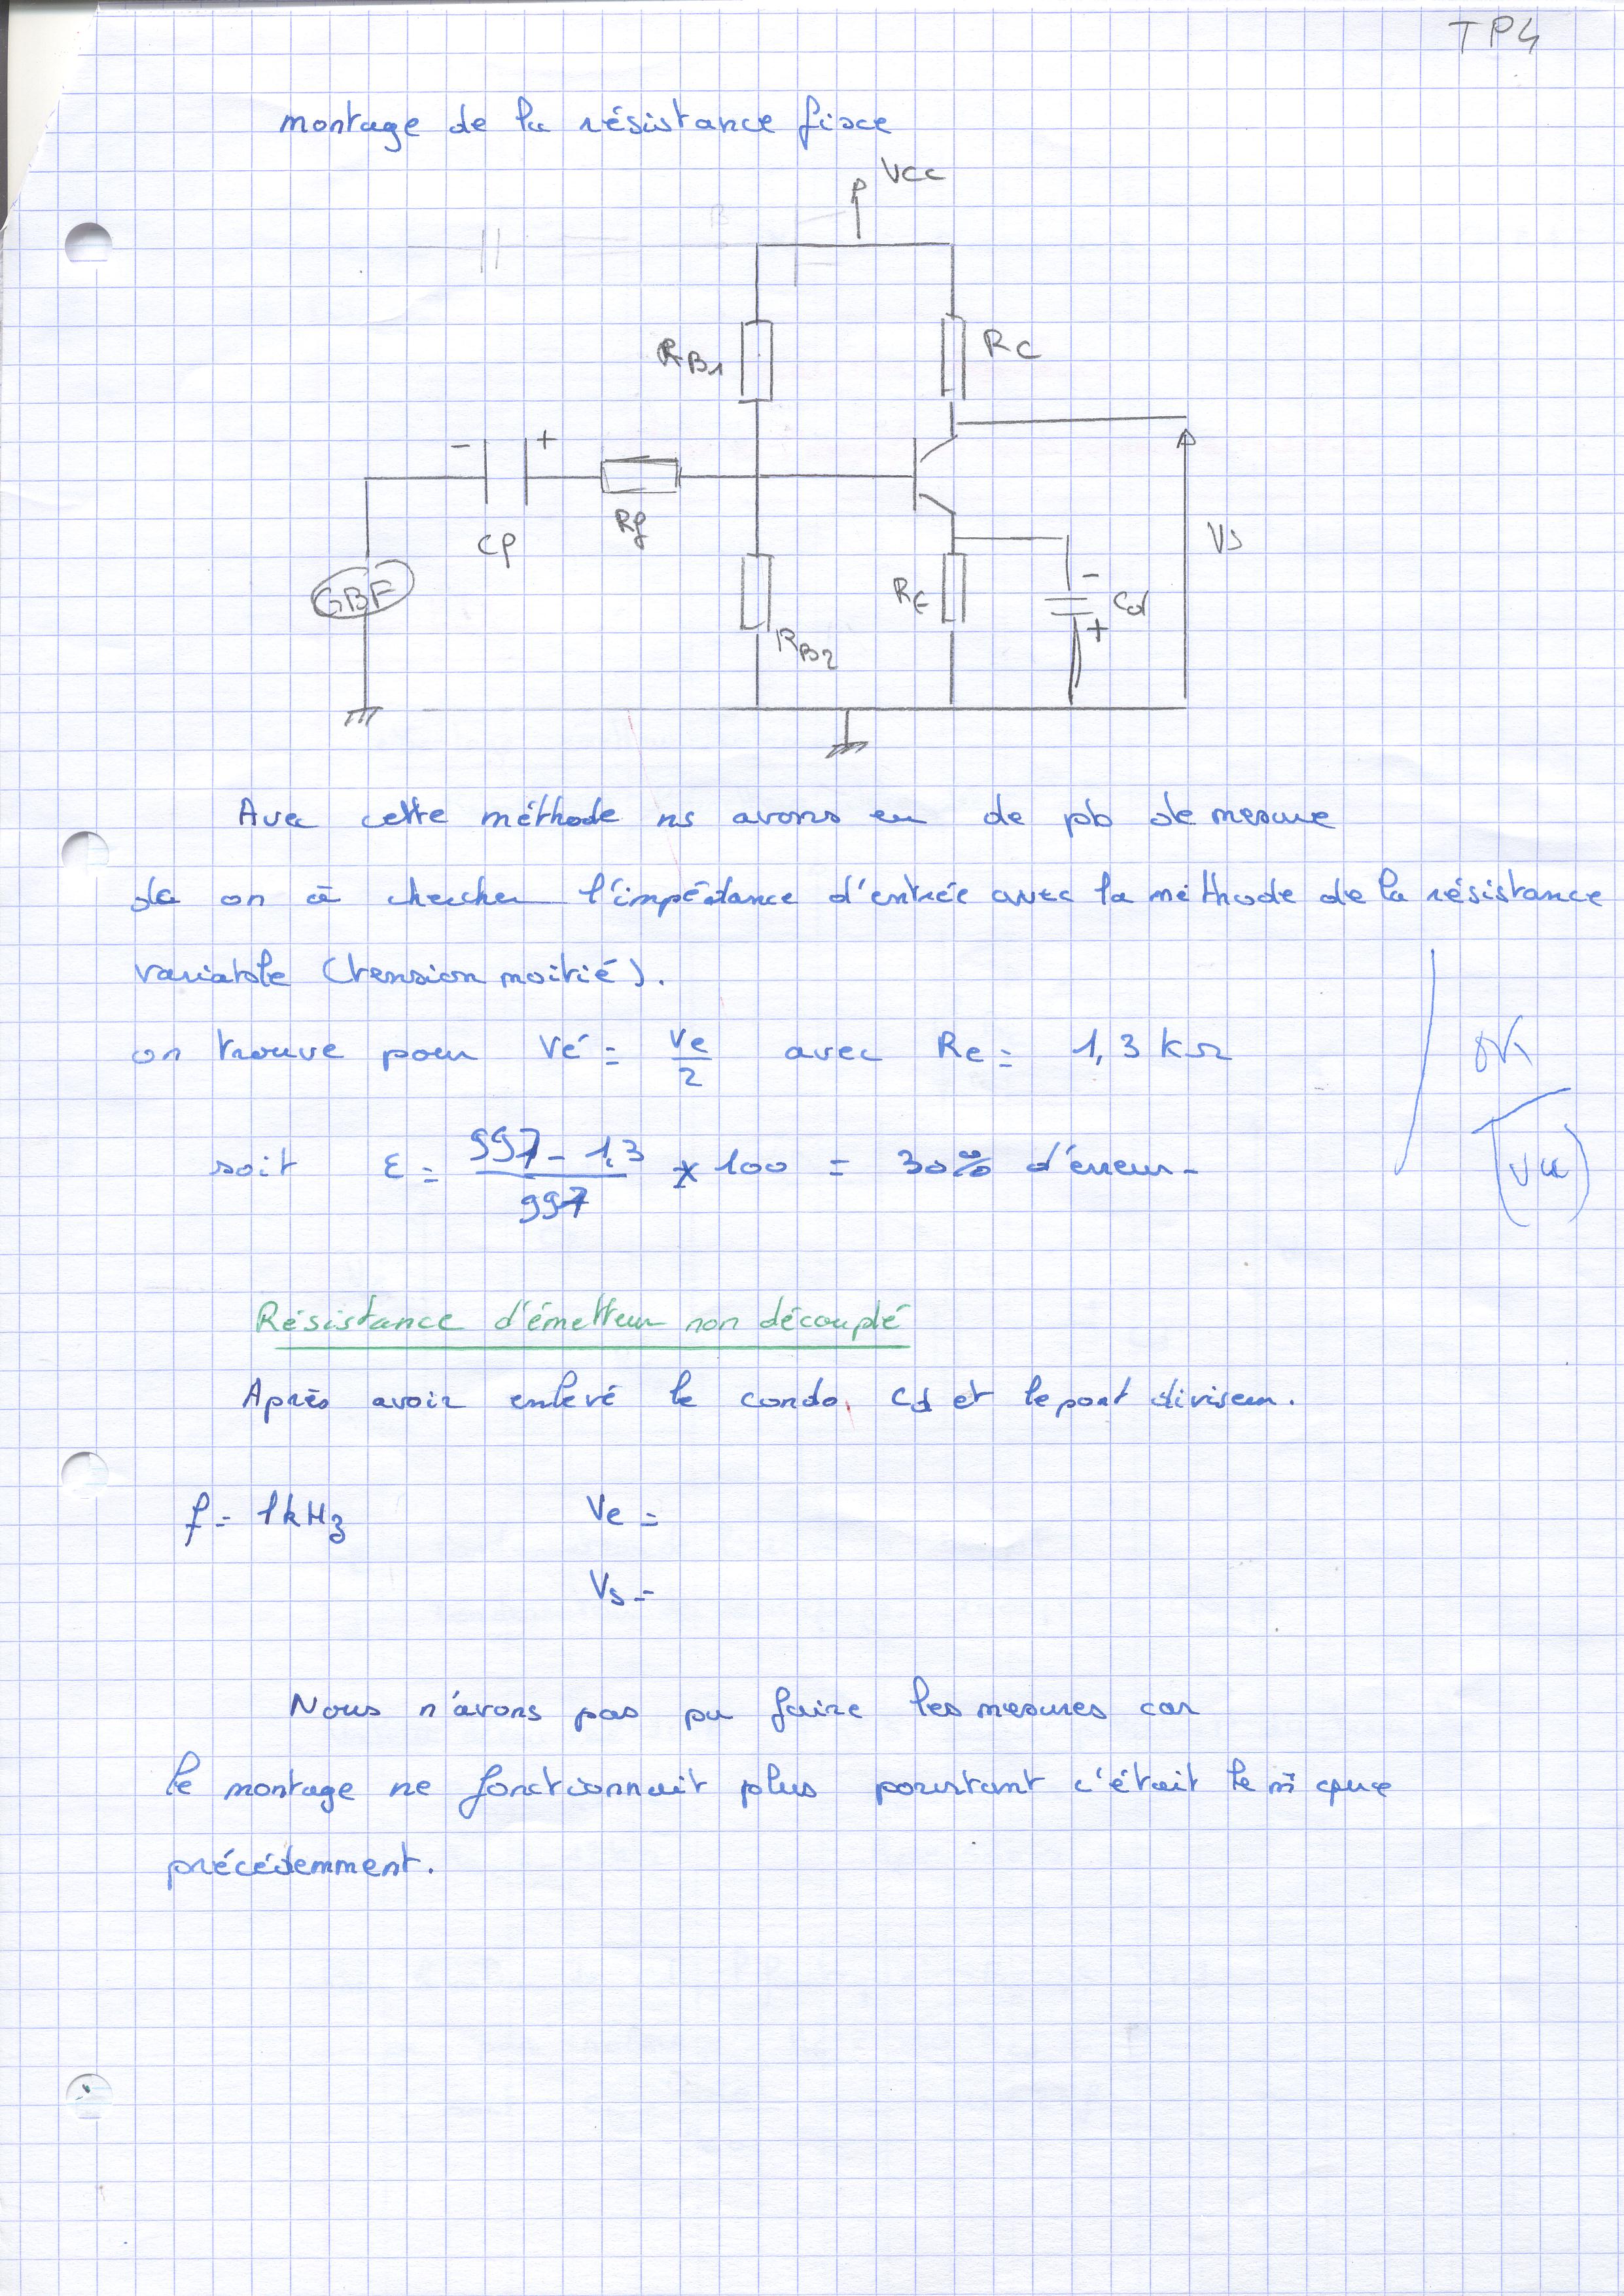 TP4
montage de la résistance fixe
Vcc
RB1
RC
- +
Rf
Cp
Vs
GBF
RE
-
Cd
+
RB2
Avec cette méthode ns avons eu de pb de mesure
dc on à chercher l'impédance d'entrée avec la méthode de la résistance
variable (tension moitié).
on trouve pour Ve' = Ve/2 avec Re = 1,3 kΩ
OK
soit ε = (997 - 1,3)/997 × 100 = 30% d'erreur.
Vu
Résistance d'émetteur non découplé
Après avoir enlevé le condo Cd et le pont diviseur.
f = 1kHz Ve =
Vs =
Nous n'avons pas pu faire les mesures car
le montage ne fonctionnait plus pourtant c'était le m̂ que
précédemment.